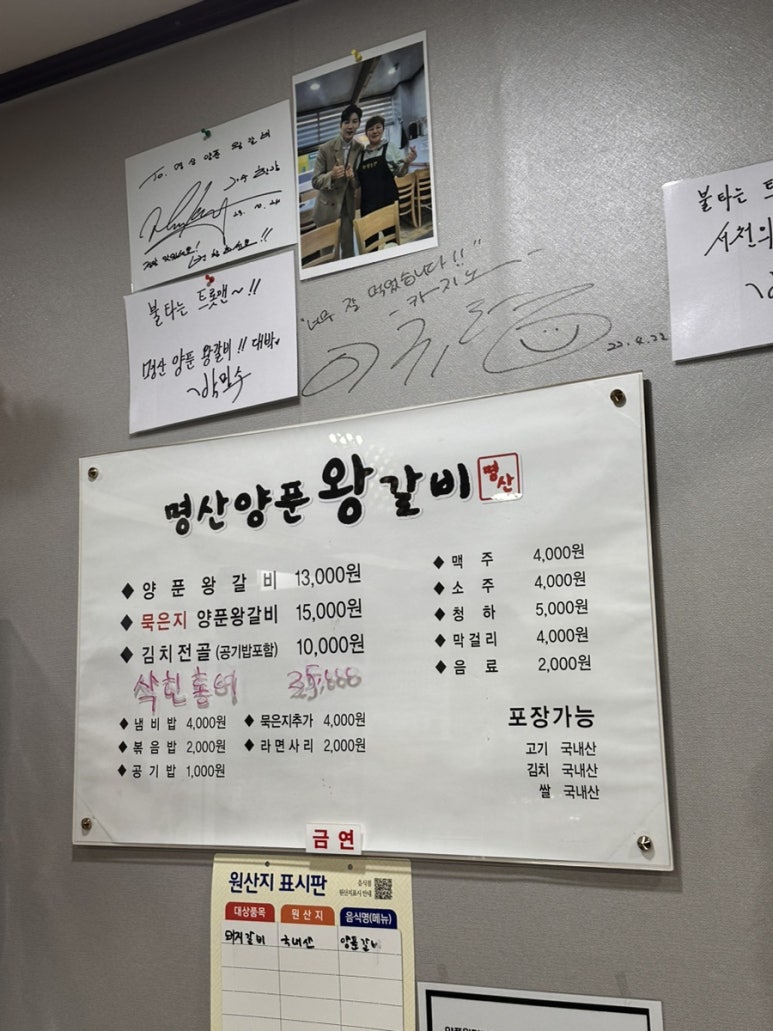 To. 명산 양푼 왕갈비
23. 10. 24
불타는 트롯맨~!!
명산 양푼 왕갈비!! 대박
박민수
"너무 잘 먹었습니다!!"
22. 4. 22
불타는 트
서천의
명산양푼왕갈비 명산
◆ 양푼왕갈비 13,000원
◆ 묵은지 양푼왕갈비 15,000원
◆ 김치전골 (공기밥포함) 10,000원
삭힌홍어
◆ 냄비밥 4,000원 ◆ 묵은지추가 4,000원
◆ 볶음밥 2,000원 ◆ 라면사리 2,000원
◆ 공기밥 1,000원
◆ 맥주 4,000원
◆ 소주 4,000원
◆ 청하 5,000원
◆ 막걸리 4,000원
◆ 음료 2,000원
포장가능
고기 국내산
김치 국내산
쌀 국내산
금연
원산지 표시판
음식점
원산지표시 안내
대상품목 원산지 음식명(메뉴)
돼지갈비 국내산 양푼갈비